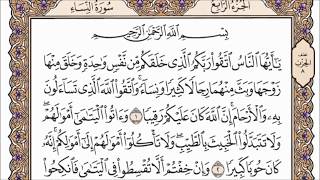 الجزء الرابع
سورة النساء
بِسْمِ اللَّهِ الرَّحْمَٰنِ الرَّحِيمِ
يَا أَيُّهَا النَّاسُ اتَّقُوا رَبَّكُمُ الَّذِي خَلَقَكُم مِّن نَّفْسٍ وَاحِدَةٍ وَخَلَقَ مِنْهَا
زَوْجَهَا وَبَثَّ مِنْهُمَا رِجَالًا كَثِيرًا وَنِسَاءً وَاتَّقُوا اللَّهَ الَّذِي تَسَاءَلُونَ
بِهِ وَالْأَرْحَامَ إِنَّ اللَّهَ كَانَ عَلَيْكُمْ رَقِيبًا ١ وَآتُوا الْيَتَامَىٰ أَمْوَالَهُمْ
وَلَا تَتَبَدَّلُوا الْخَبِيثَ بِالطَّيِّبِ وَلَا تَأْكُلُوا أَمْوَالَهُمْ إِلَىٰ أَمْوَالِكُمْ إِنَّهُ
كَانَ حُوبًا كَبِيرًا ٢ وَإِنْ خِفْتُمْ أَلَّا تُقْسِطُوا فِي الْيَتَامَىٰ فَانكِحُوا